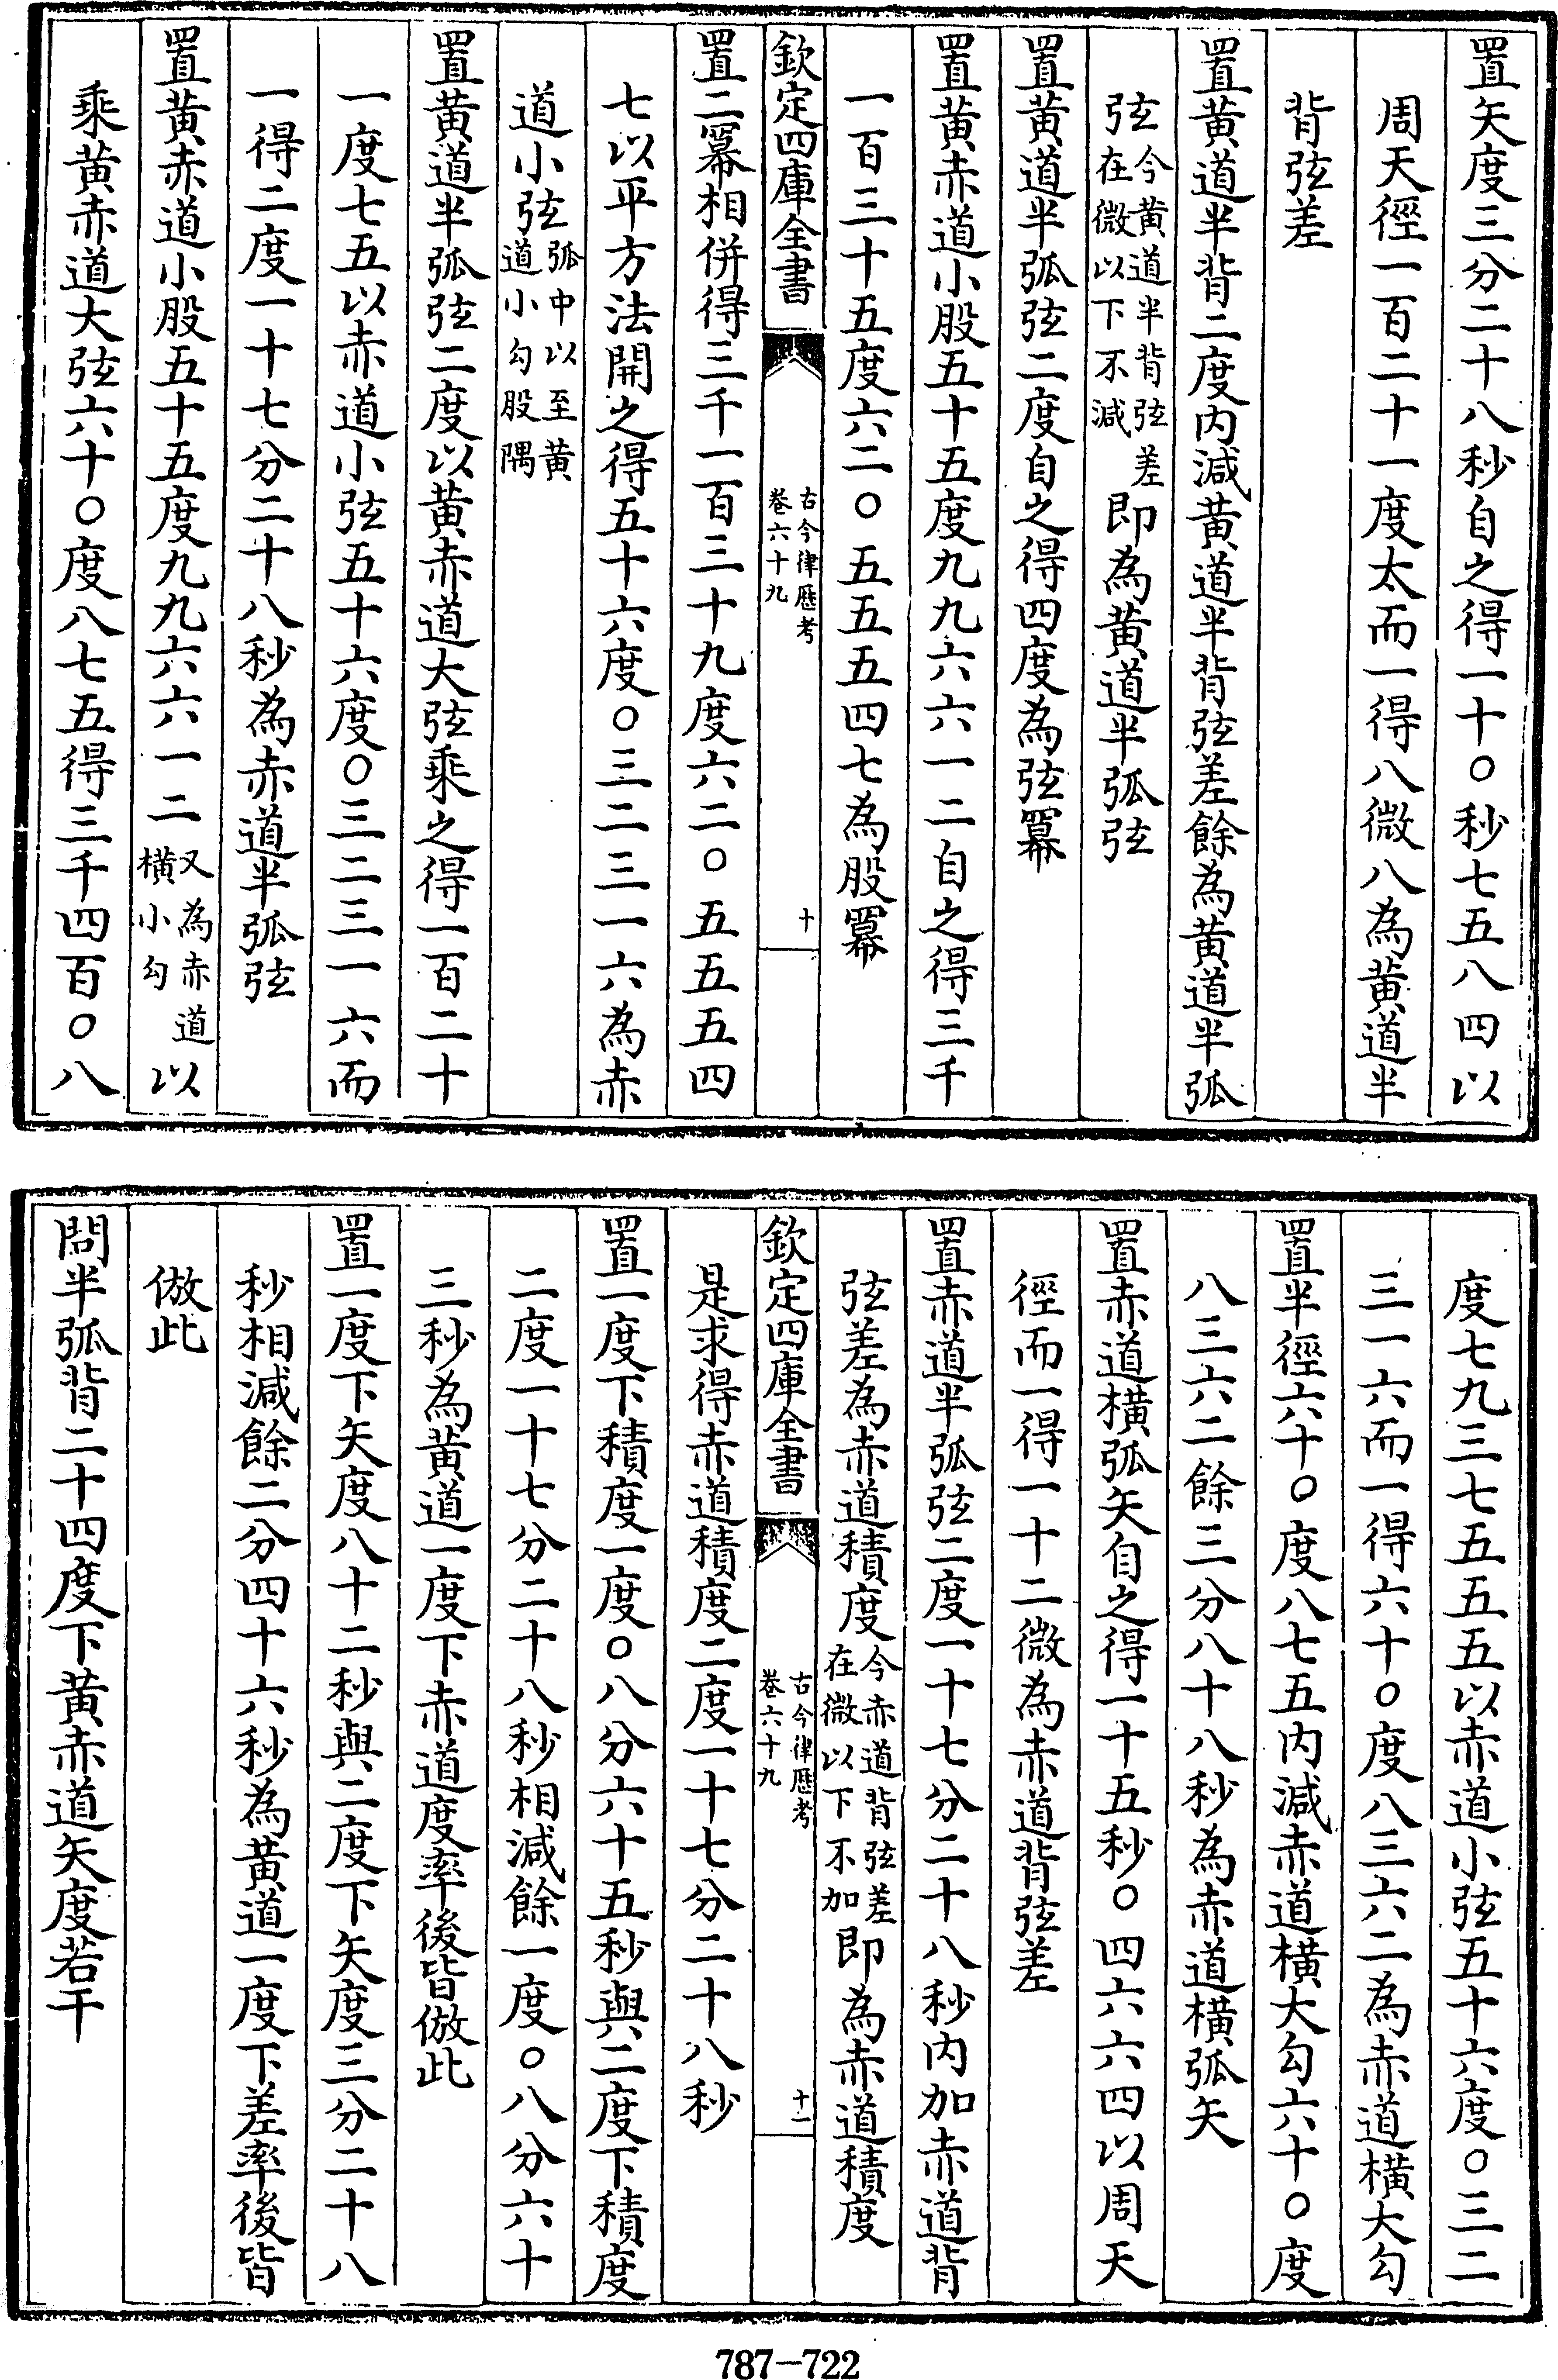 置矢度三分二十八秒自之得一十〇秒七五八四以
周天徑一百二十一度太而一得八微八為黃道半
背弦差
置黃道半背二度内減黃道半背弦差餘為黃道半弧
弦今黃道半背弦差在微以下不減即為黃道半弧弦
置黃道半弧弦二度自之得四度為弦冪
置黃赤道小股五十五度九九六六一二自之得三千
一百三十五度六二〇五五五四七為股冪
欽定四庫全書
古今律歷考
卷六十九
十
置二冪相併得三千一百三十九度六二〇五五五四
七以平方法開之得五十六度〇三二三一六為赤
道小弦弧中以至黃道小勾股隅
置黃道半弧弦二度以黃赤道大弦乘之得一百二十
一度七五以赤道小弦五十六度〇三二三一六而
一得二度一十七分二十八秒為赤道半弧弦
置黃赤道小股五十五度九九六六一二又為赤道橫小勾以
乘黃赤道大弦六十〇度八七五得三千四百〇八
度七九三七五五五以赤道小弦五十六度〇三二
三一六而一得六十〇度八三六二為赤道橫大勾
置半徑六十〇度八七五内減赤道橫大勾六十〇度
八三六二餘三分八十八秒為赤道橫弧矢
置赤道橫弧矢自之得一十五秒〇四六六四以周天
徑而一得一十二微為赤道背弦差
置赤道半弧弦二度一十七分二十八秒内加赤道背
弦差為赤道積度今赤道背弦差在微以下不加即為赤道積度
欽定四庫全書
古今律歷考
卷六十九
十一
是求得赤道積度二度一十七分二十八秒
置一度下積度一度〇八分六十五秒與二度下積度
二度一十七分二十八秒相減餘一度〇八分六十
三秒為黃道一度下赤道度率後皆倣此
置一度下矢度八十二秒與二度下矢度三分二十八
秒相減餘二分四十六秒為黃道一度下差率後皆
倣此
問半弧背二十四度下黃赤道矢度若干
787-722